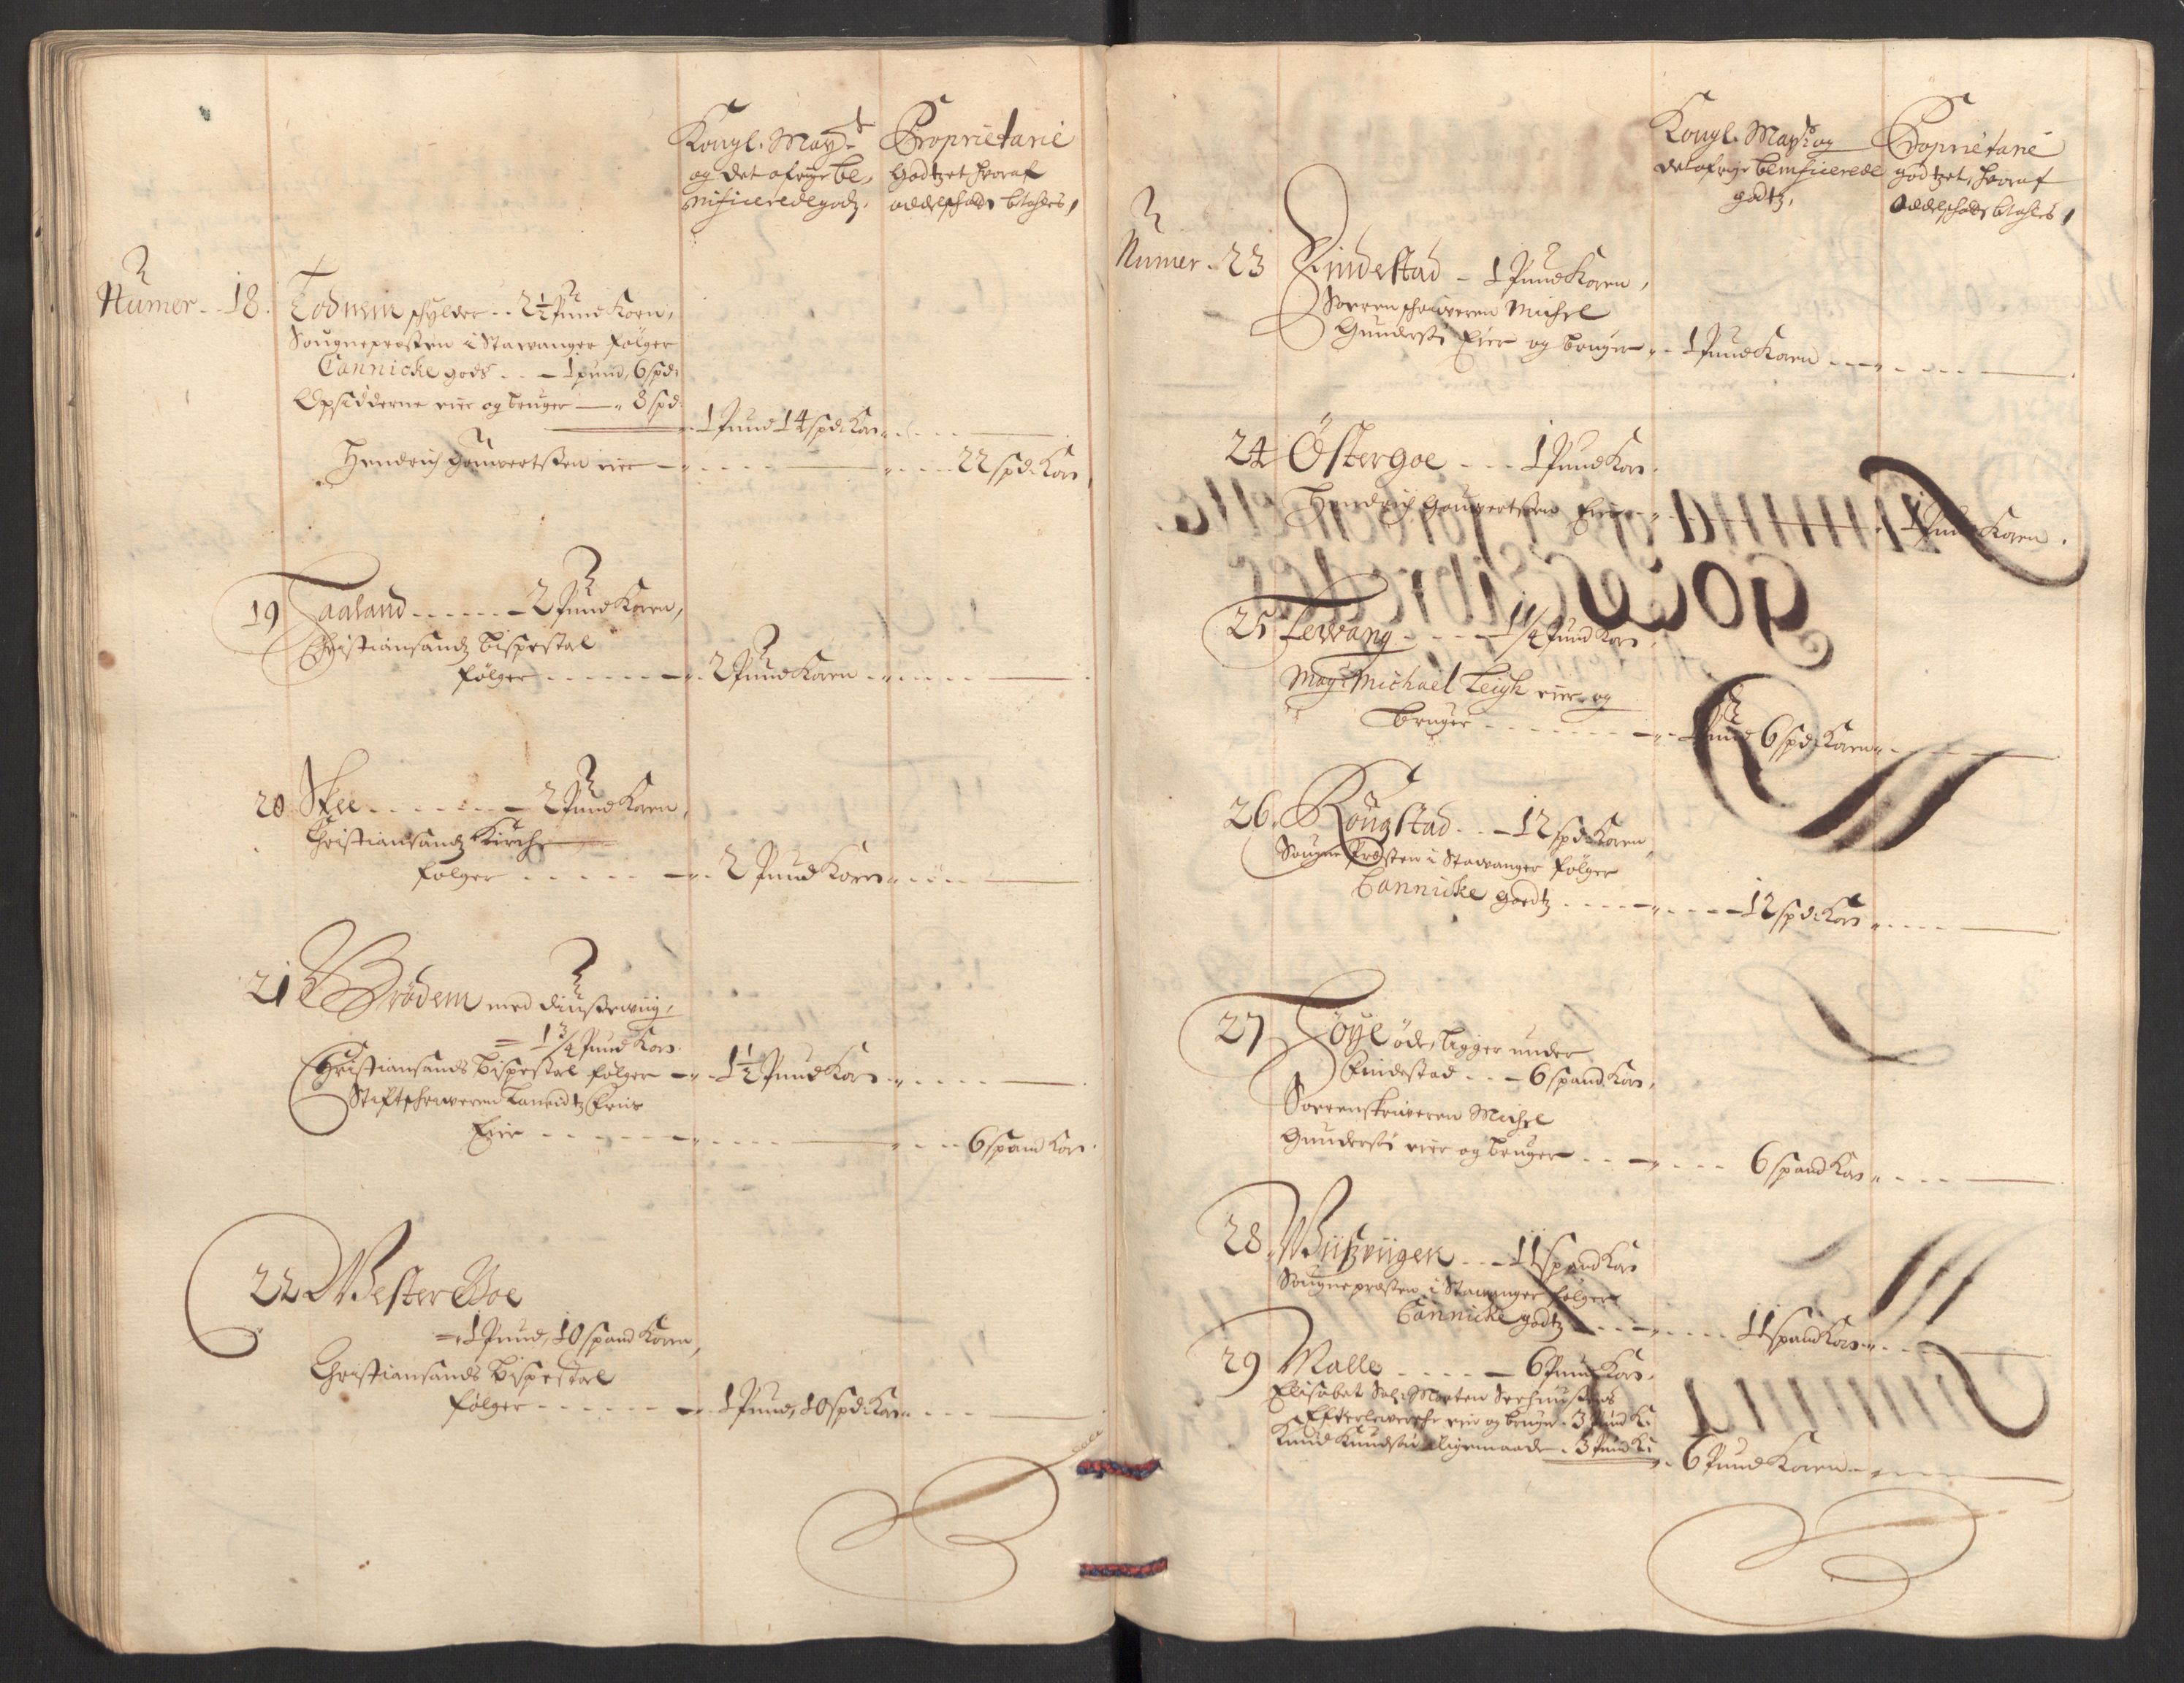 Kongl. May.t
og det øfrige be-
nificerede godz.
Proprietarie
Godtzet hvoraf
oddelschatt btahles,
Numer .. 18. Todnem schylder .. 2½ Pund Korn,
Sougnepresten i Stavanger følger
Cannicke gods .. 1 pund, 6 spd:
Opsidderne eier og bruger — 8 spd.
1 Pund 14 spd: Korn
Hendrich Gouvertsen eier — 22 spd: Korn,
19 Taaland ...... 2 Pund Korn,
Christiansandz bispestol
følger ...... 2 Pund Korn
20 Skee ...... 2 Pund Korn,
Christiansandz Kirche
følger ...... 2 Pund Korn
21 Brödem med
1¾ Pund Korn.
Christiansands bispestol følger — 1½ Pund Korn
Stiftschriveren
Eier ...... 6 spand Korn.
22 Wester Boe
1 Pund, 10 spand Korn,
Christiansands bispestol
følger ...... 1 Pund, 10 spd: Korn
Kongl. May.ts og
det øfrige benificerede
godtz,
Proprietarie
godtzet, hvoraf
Oddelschatt btahles,
Numer . 23 Findestad — 1 Pund Korn,
Sorrenschriveren Michel
Gunders: Eier og bruger .. 1 Pund Korn
24 Östergoe ... 1 Pund Korn.
Hendrich Gouvertsen Eier ... 1 Pund Korn.
25 Lervang .... 1¼ Pund Korn,
May: Michael Leigh eier og
bruger ...... 1 Pund 6 spd: Korn
26. Rougstad .. 12 spd: Korn,
Sougne Presten i Stavanger følger
Cannicke godtz ..... 12 spd: Korn
27 Töye öde, ligger under
Findestad .. 6 spand Korn,
Sorrenskriveren Michel
Gunders: eier og bruger ... 6 spand Korn
28. Wiszviigen .. 11 spand Korn
Sougnepresten i Stavanger følger
Cannicke godtz .... 11 spand Korn
29 Malle .... 6 Pund Korn.
Elisabet Sal: Morten Seehuusens
Efterleversche eier og bruger . 3 Pund K:
Knud Knudsen ligemaade . 3 Pund K:
6 Pund Korn